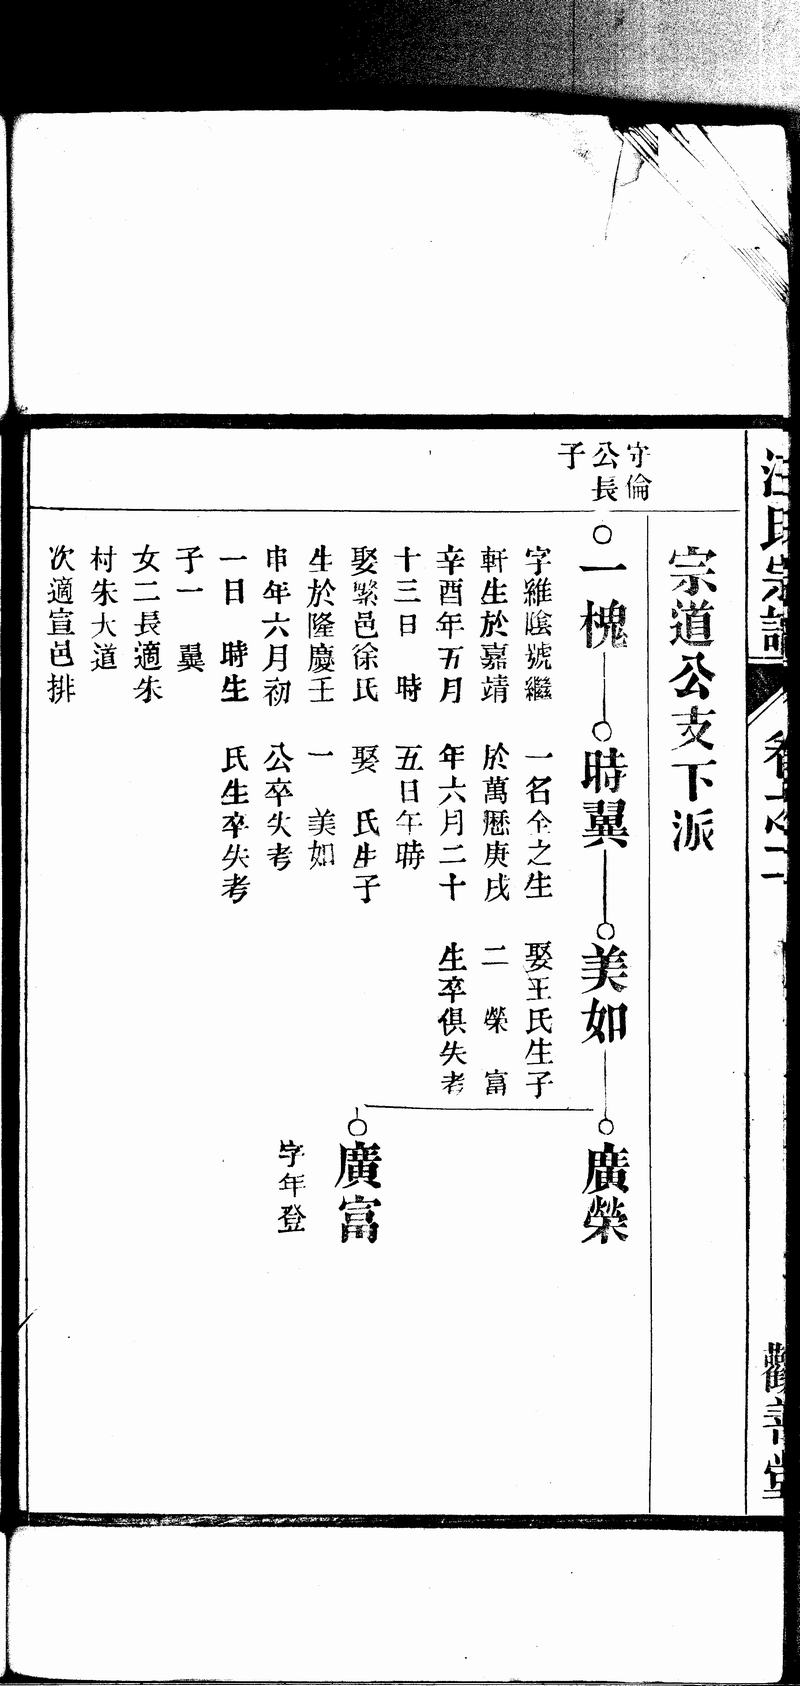 汪氏宗譜
觀善堂
宗道公支下派
守倫
公長
子
一槐
字維陰號繼
軒生於嘉靖
辛酉年五月
十三日　時
娶繁邑徐氏
生於隆慶壬
申年六月初
一日　時生
子一　翼
女二長適朱
村朱大道
次適宣邑排
時翼
一名全之生
於萬曆庚戌
年六月二十
五日午時
娶　氏生子
一　美如
公卒失考
氏生卒失考
美如
娶王氏生子
二　榮　富
生卒俱失考
廣榮
廣富
字年登